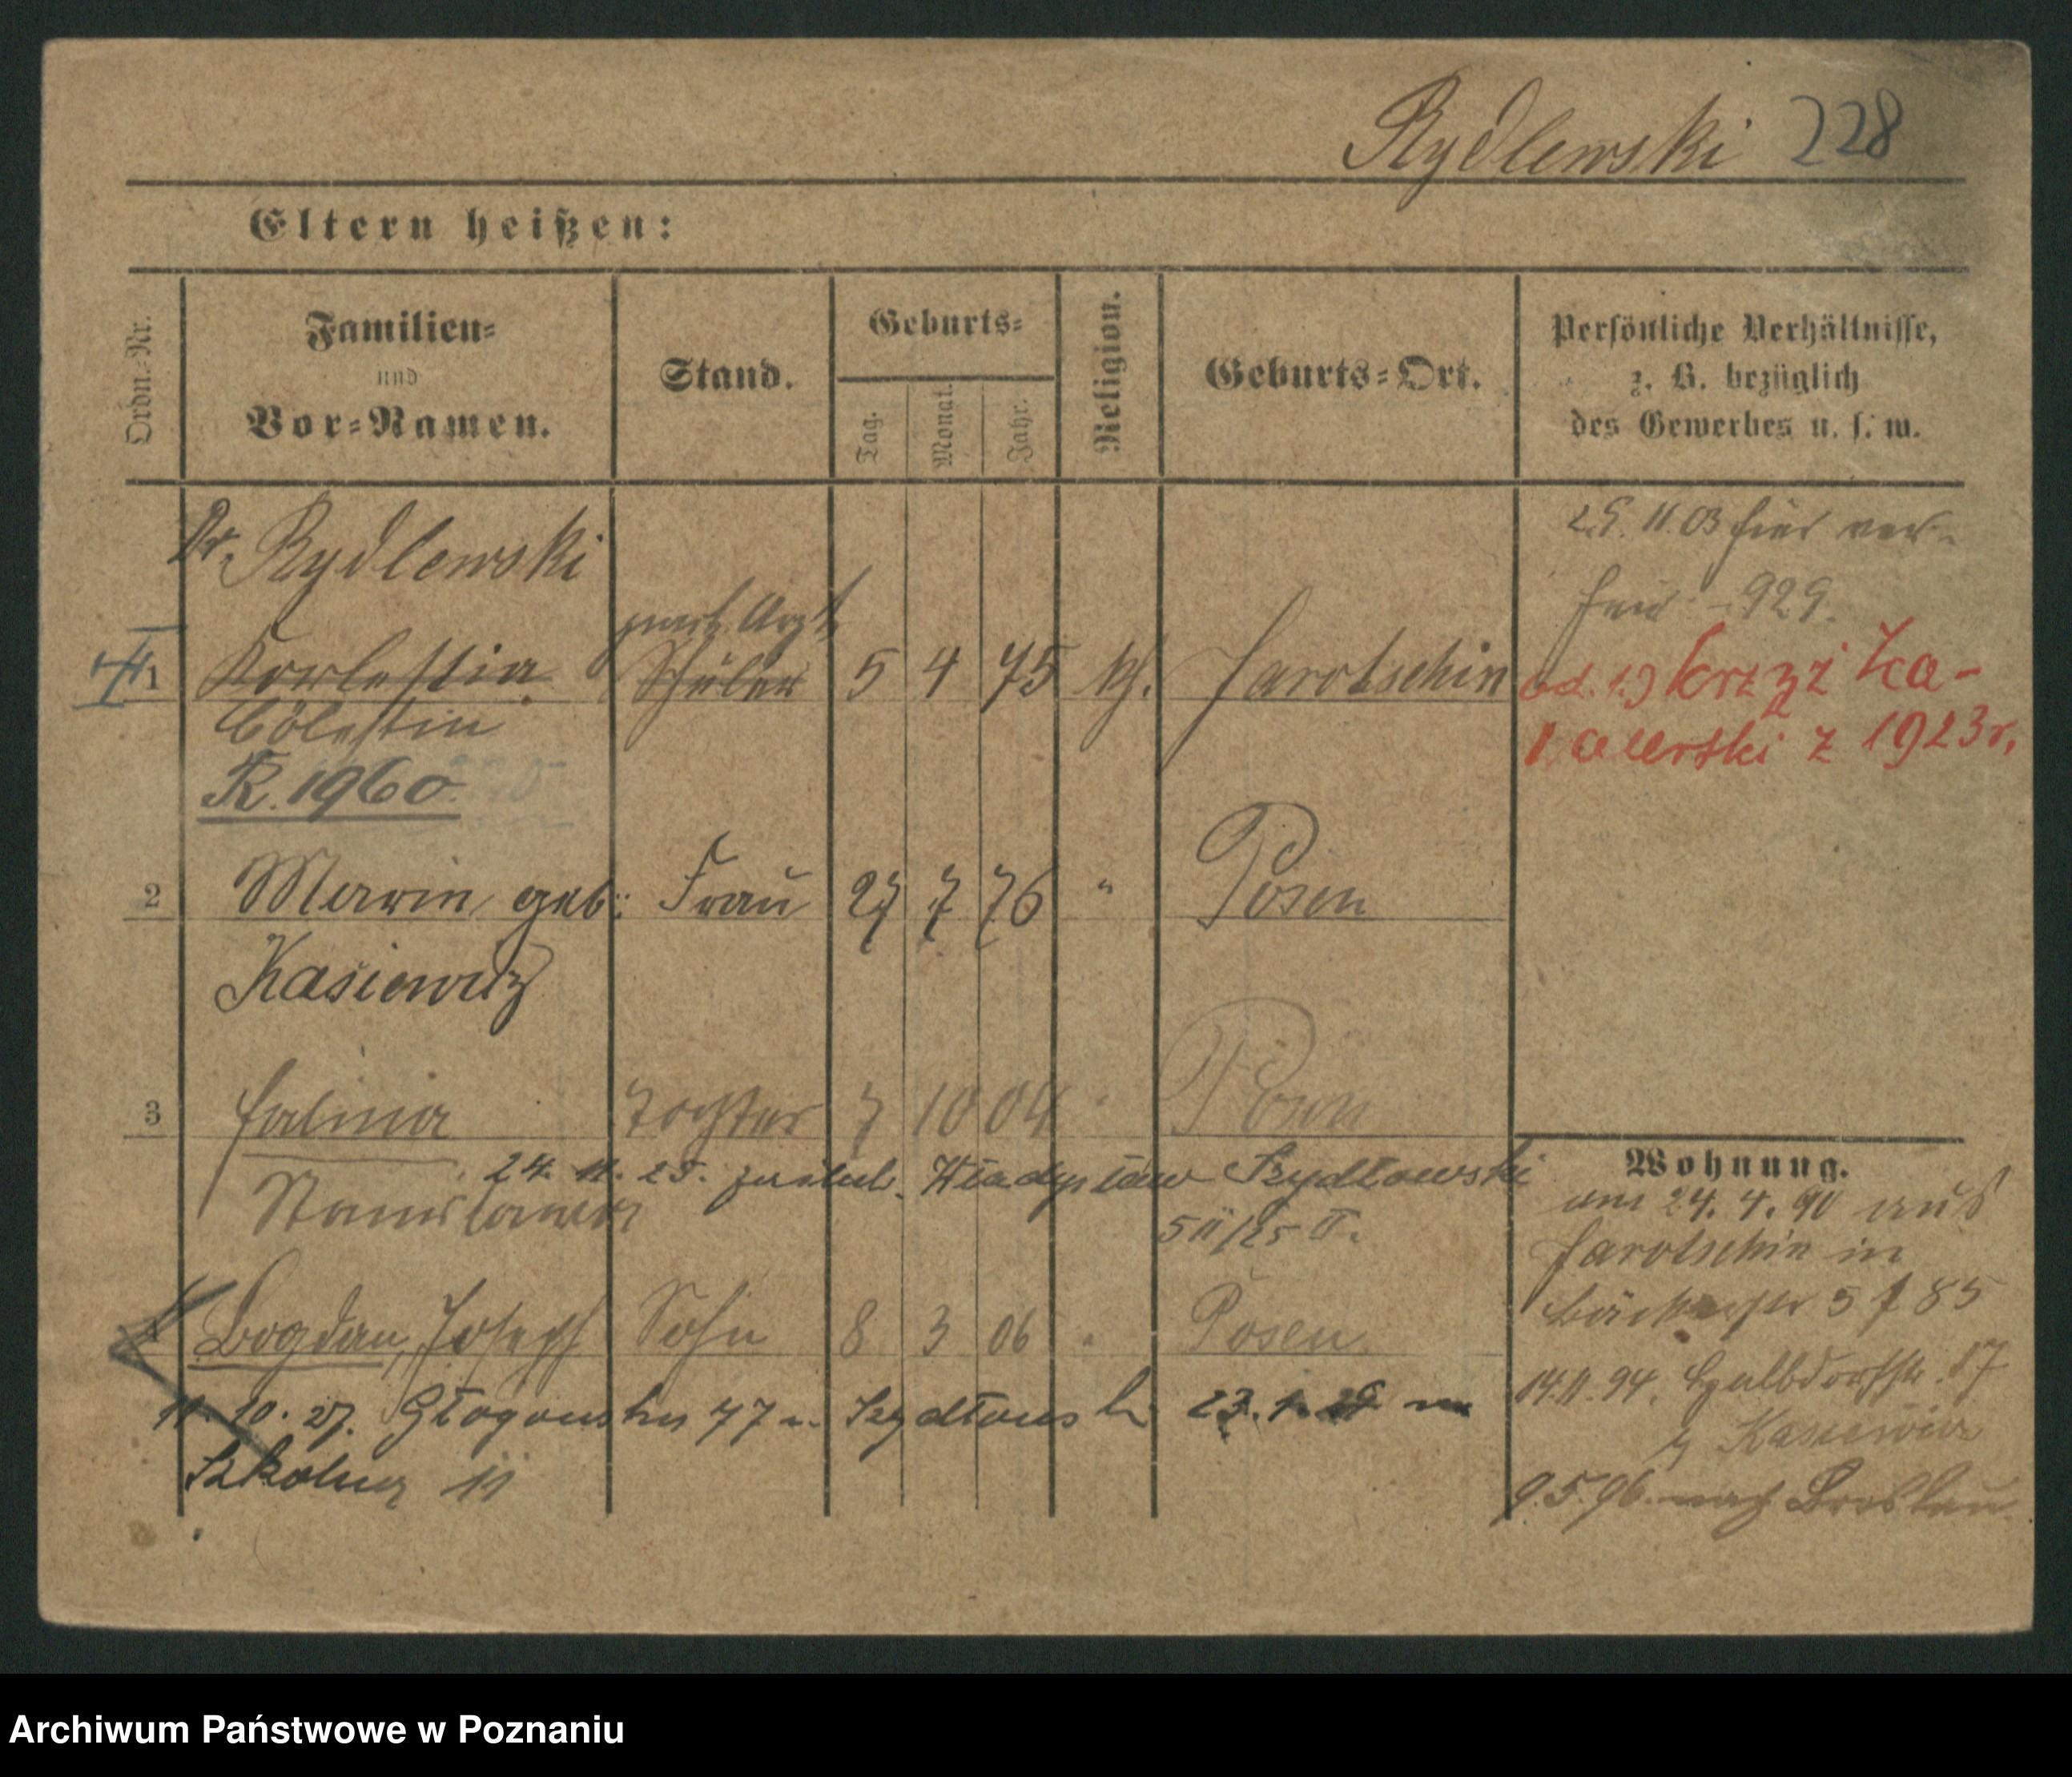 Rydlewski 228
Eltern heißen:
Ordn.-Nr.
Familien- und Vor-Namen.
Stand.
Geburts-
Tag. Monat. Jahr.
Religion.
Geburts-Ort.
Persönliche Verhältnisse,
z. B. bezüglich
des Gewerbes u. s. w.
Dr. Rydlewski
prakt. Arzt
1 Korlestin Schüler 5 4 75 kth. Jarotschin
Cölestin
R. 1960
25. 11. 03 hier ver-
929.
od. 1.9 Krzyż Za-
lawerski z 1923 r.
2 Maria geb: Frau 27 7 76 " Posen
Kasiewicz
3 Halina Tochter 7 10 04 " Posen
24. 11. 25. Władysław Szydłowski
Stanisława
5 II/25 II.
4 Bogdan, Joseph Sohn 8 3 06 " Posen
11. 10. 27. Głogowska 77 Szydłowski 23. 1.
Szkolna 11
Wohnung.
am 24. 4. 90 aus
Jarotschin in
Bäckerstr 5 f 85
14.11.94. Halbdorfstr. 17
b Kasiewicz
9.5.96. nach Breslau
Archiwum Państwowe w Poznaniu